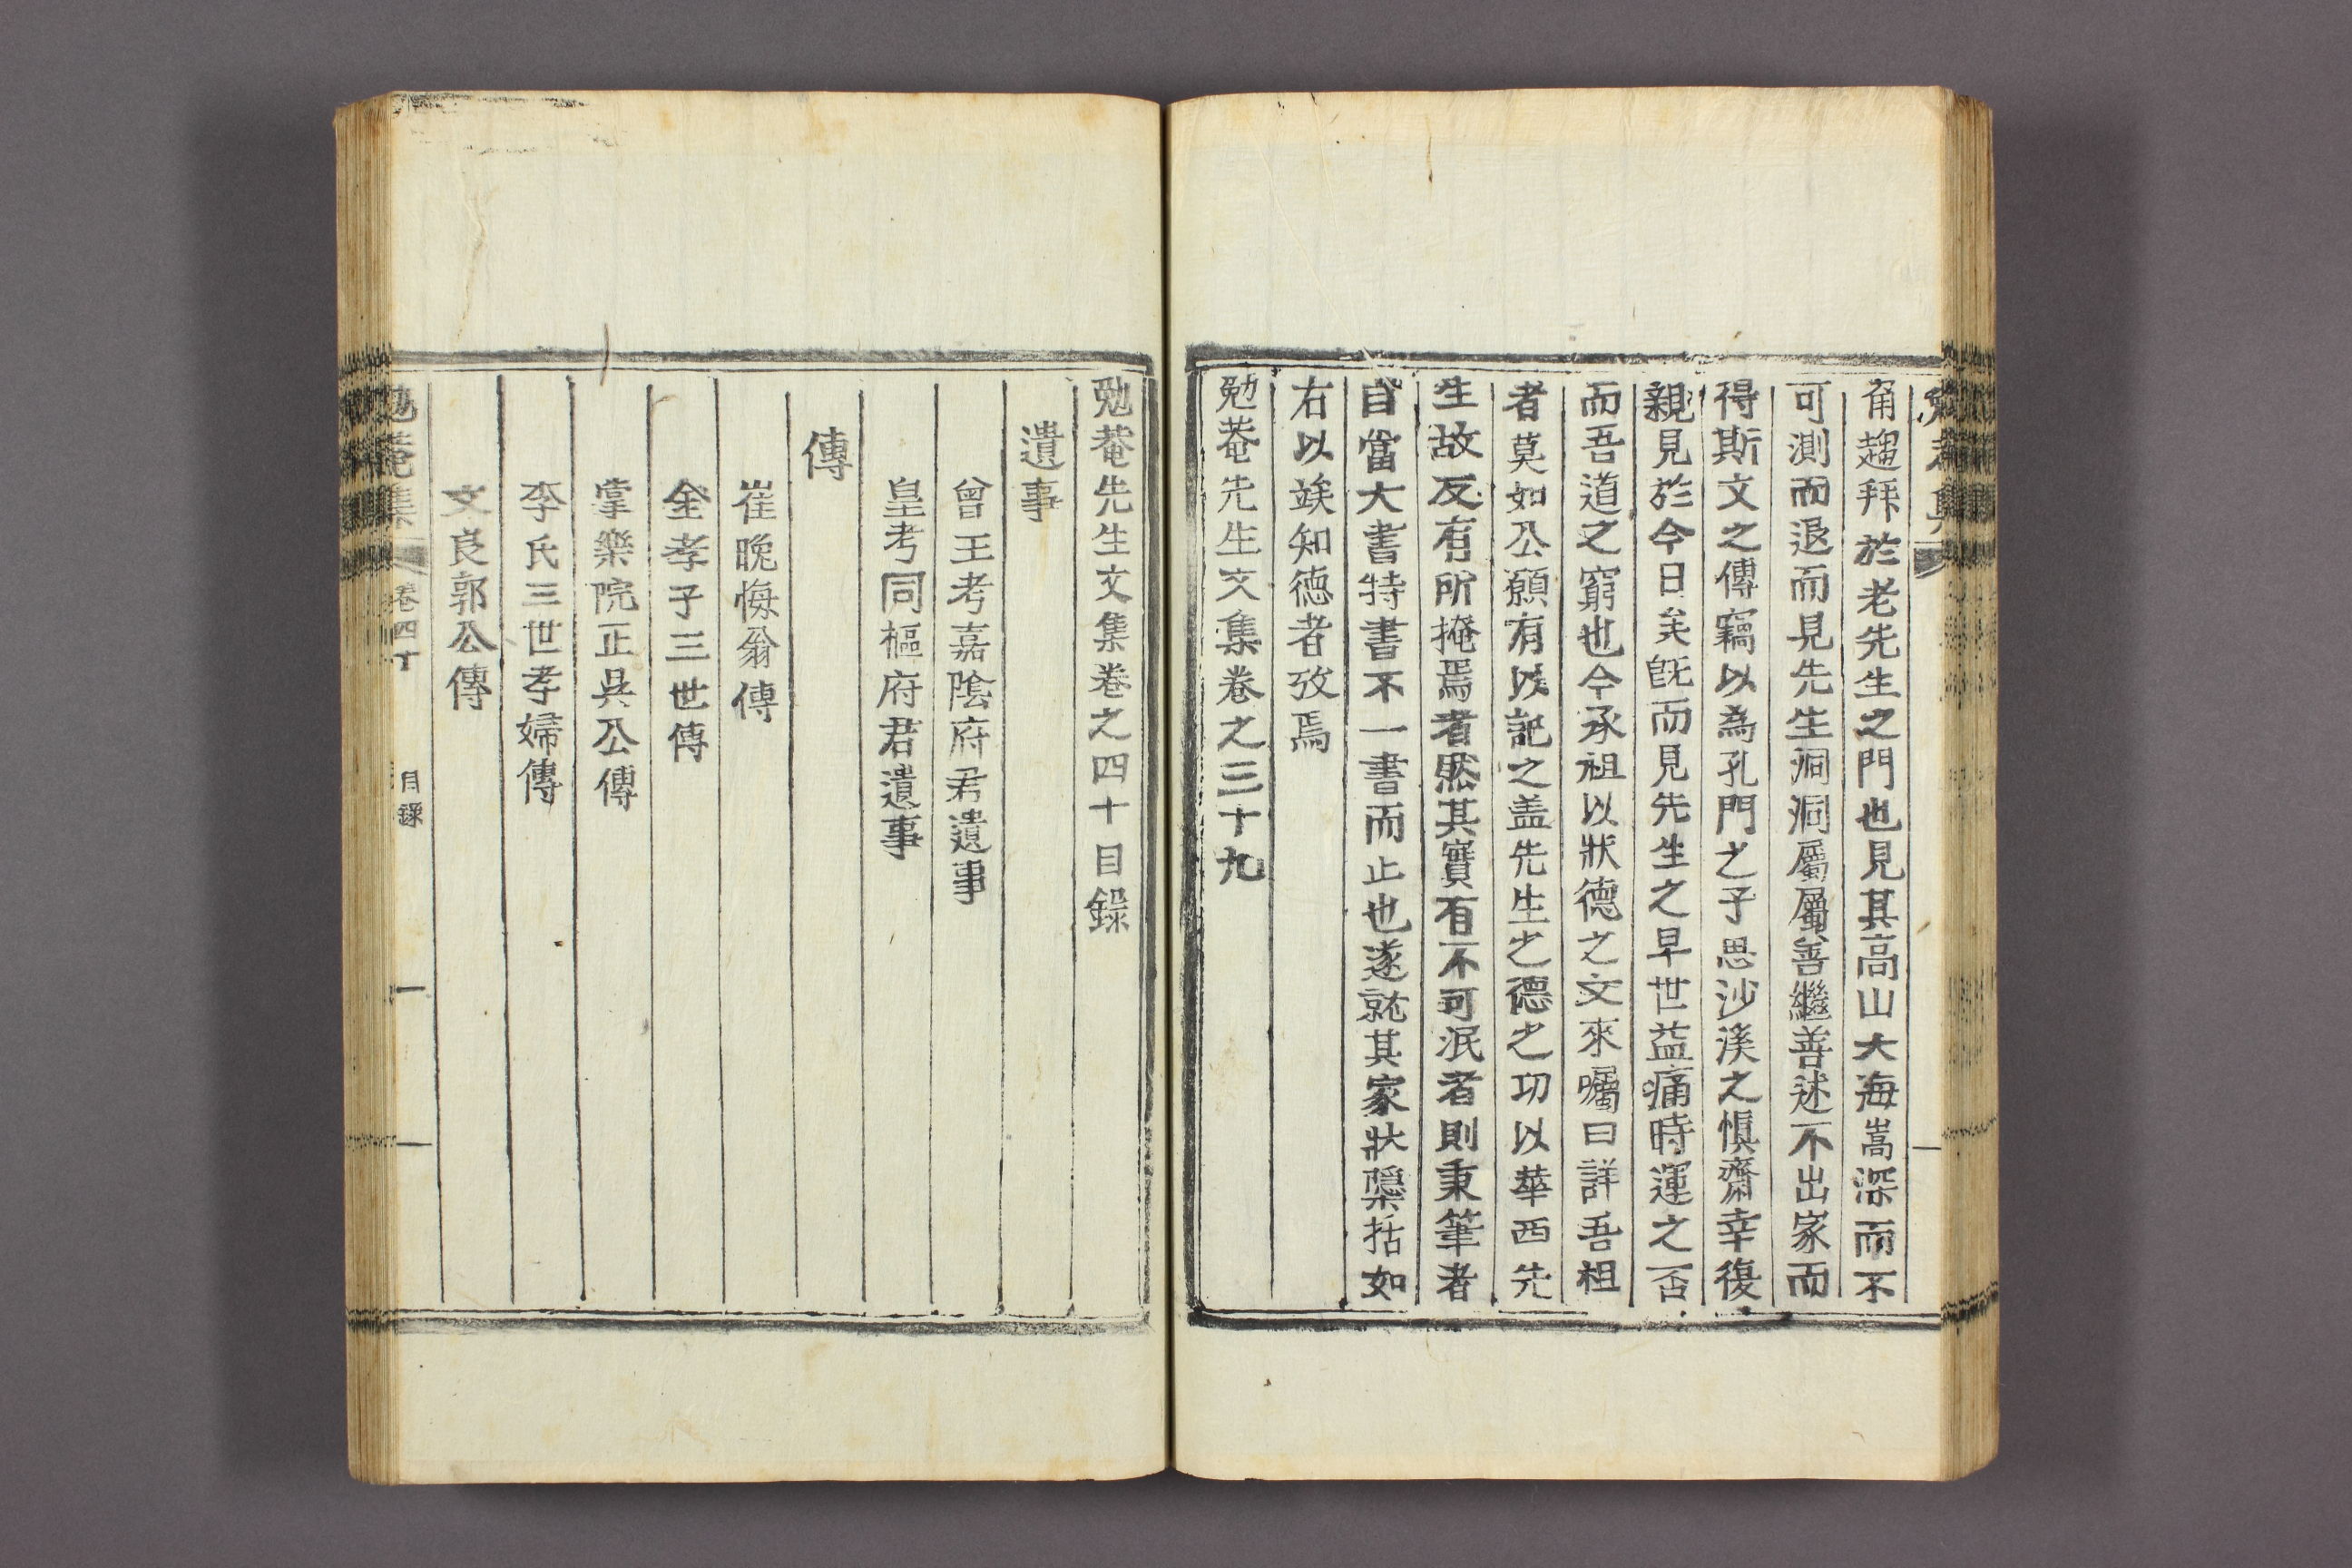 甬趨拜於老先生之門也見其高山大海嵩深而不
可測而退而見先生洞洞屬屬善繼善述不出家而
得斯文之傳竊以為孔門之子思沙溪之愼齋幸復
親見於今日矣旣而見先生之早世益痛時運之否
而吾道之窮也今承祖以狀德之文來囑曰詳吾祖
者莫如公願有以記之盖先生之德之功以華西先
生故反有所掩焉者然其實有不可泯者則秉筆者
自當大書特書不一書而止也遂就其家狀隱括如
右以竢知德者攷焉
勉菴先生文集卷之三十九
勉菴先生文集卷之四十目錄
遺事
曾王考嘉陰府君遺事
皇考同樞府君遺事
傳
崔晚悔翁傳
金孝子三世傳
掌樂院正吳公傳
李氏三世孝婦傳
文良郭公傳
勉菴集 卷四十 目錄 一